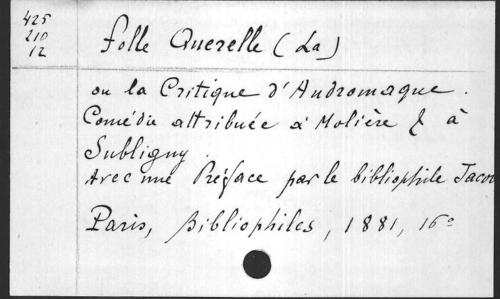 425
210
12
folle Querelle (La)
ou la Critique d'Andromaque.
Comédie attribuée à Molière & à
Subligny.
Avec une Préface par le bibliophile Jacob
Paris, Bibliophiles, 1881, 16°